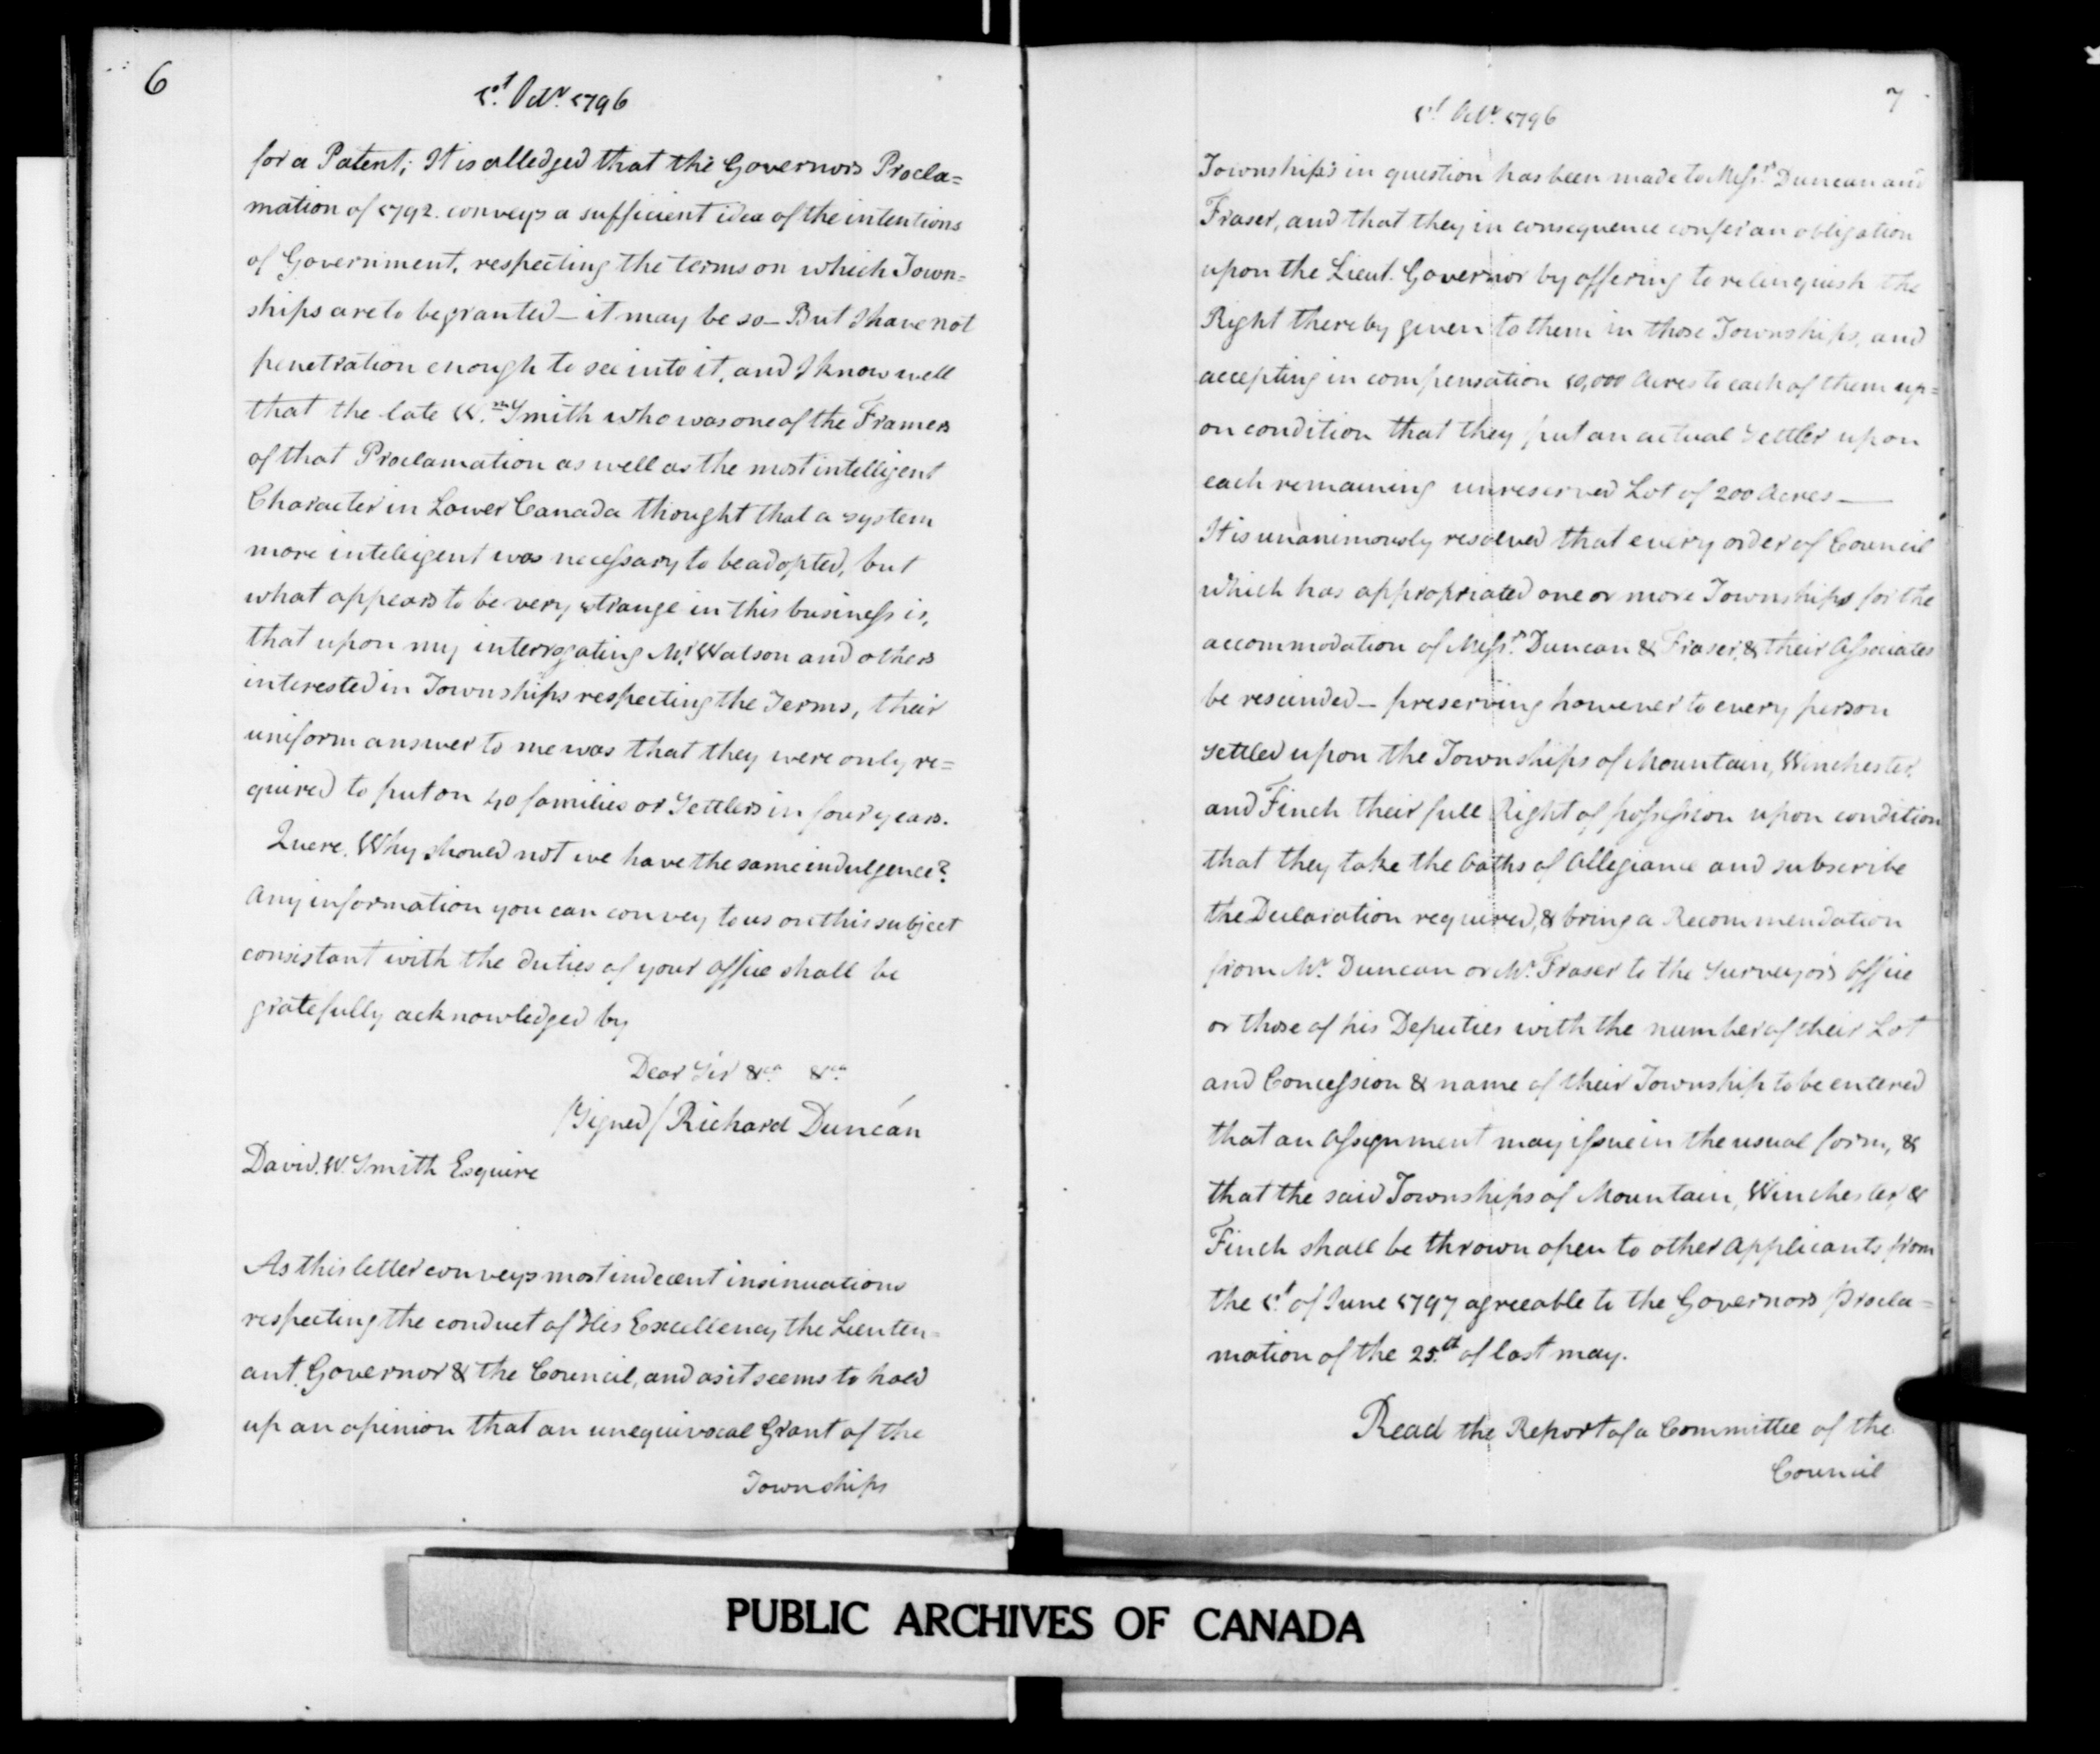 6
1st Octr. 1796
for a Patent; It is alledged that the Governors Procla=
mation of 1792. conveys a sufficient idea of the intentions
of Government, respecting the terms on which Town=
ships are to be granted — it may be so — But I have not
penetration enough to see into it, and I know well
that the late Wm. Smith who was one of the Framers
of that Proclamation as well as the most intelligent
Character in Lower Canada thought that a system
more intelligent was necessary to be adopted, but
what appears to be very strange in this business is,
that upon my interrogating Mr. Watson and others
interested in Townships respecting the Terms, their
uniform answer to me was that they were only re=
quired to put on 40 families or Settlers in four years.
Quere. Why should not we have the same indulgence?
Any information you can convey to us on this subject
consistant with the duties of your office shall be
gratefully acknowledged by
Dear Sir &ca. &ca.
/Signed/ Richard Duncan
David. W. Smith Esquire
As this letter conveys most indecent insinuations
respecting the conduct of His Excellency the Lieuten=
ant. Governor & the Council, and as it seems to hold
up an opinion that an unequivocal Grant of the
Townships
7
1st Octr. 1796
Townships in question has been made to Messrs. Duncan and
Fraser, and that they in consequence confer an obligation
upon the Lieut. Governor by offering to relinquish the
Right thereby given to them in those Townships, and
accepting in compensation 10,000 Acres to each of them up=
on condition that they put an actual Settler upon
each remaining unreserved Lot of 200 Acres —
It is unanimously resolved that every order of Council
which has appropriated one or more Townships for the
accommodation of Messrs. Duncan & Fraser, & their Associates
be rescinded — preserving however to every person
settled upon the Townships of Mountain, Winchester,
and Finch their full Right of possession upon condition
that they take the Oaths of Allegiance and subscribe
the Declaration required, & bring a Recommendation
from Mr. Duncan or Mr. Fraser to the Surveyor's Office
or those of his Deputies with the number of their Lot
and Concession & name of their Township to be entered
that an Assignment may issue in the usual form, &
that the said Townships of Mountain, Winchester, &
Finch shall be thrown open to other Applicants from
the 1st of June 1797 agreeable to the Governors Procla=
mation of the 25th. of last may.
Read the Report of a Committee of the
Council
PUBLIC ARCHIVES OF CANADA